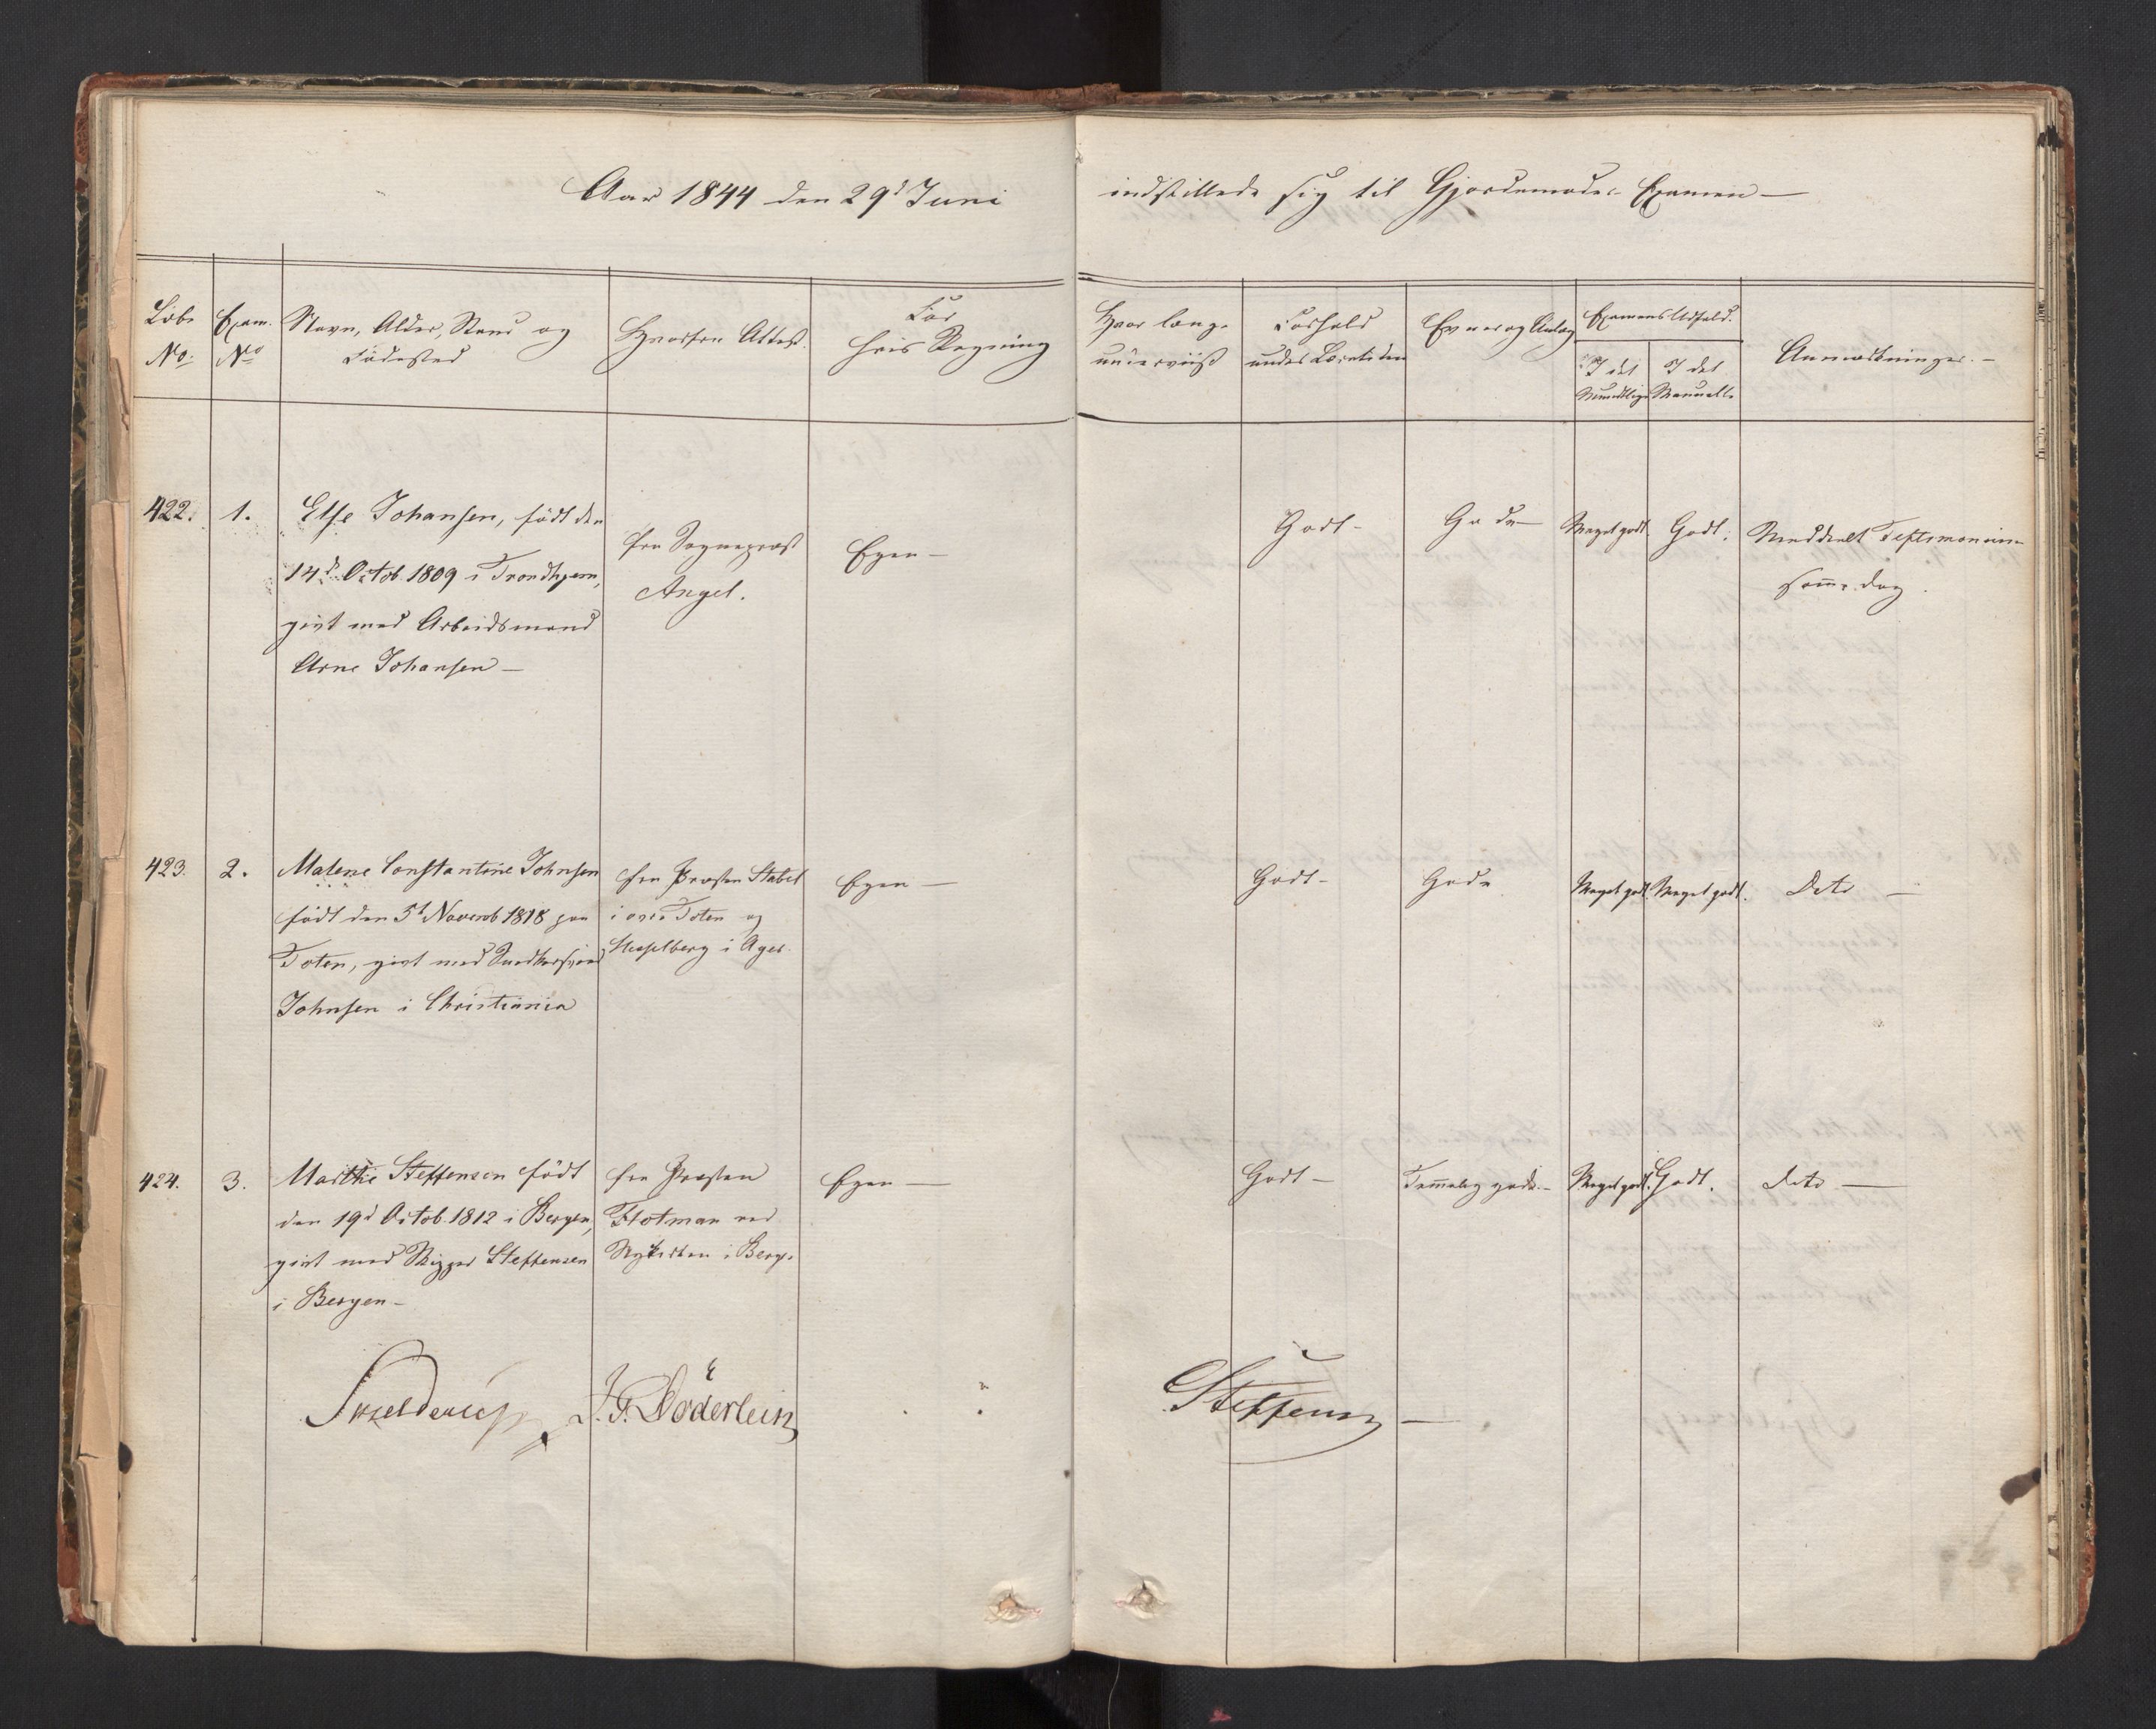 Aar 1844 den 29d Juni indstillede sig til Gjordemoder Examen —
Löbe No.
Exam. No
Navn, Alder, Stand og Födested
Hvorfra Attest.
For hvis Regning
Hvor længe underviist
Forhold under Læretiden
Evner og Anlæg
Examens Udfald.
I det Mundtlige
I det Manuelle
Anmærkninger. —
422. 1. Else Johansen, födt den
14d Octob. 1809 i Trondhjem,
givt med Arbeidsmand
Arne Johansen —
fra Sognepræst
Angel.
Egen —
Godt —
Gode —
Meget godt.
Godt.
Meddeelt Testimonium
samme Dag.
423. 2. Malene Constantine Johnsen
födt den 5t Novemb 1818 paa
Toten, givt med
Johnsen i Christiania
fra Præsten Stabel
i Toten og
Hesselberg i Ager.
Egen —
Godt —
Gode
Meget godt.
Meget godt.
Dito —
424. 3. Marthe Steffensen födt
den 19d Octob. 1812 i Bergen,
givt med Skipper Steffensen
i Bergen —
fra Præsten
Flotman ved
Nykirken i Berg.
Egen —
Godt —
Temmelig gode. —
Meget godt.
Godt.
Dito —
Skjelderup J. F. Döderlein
Steffens —